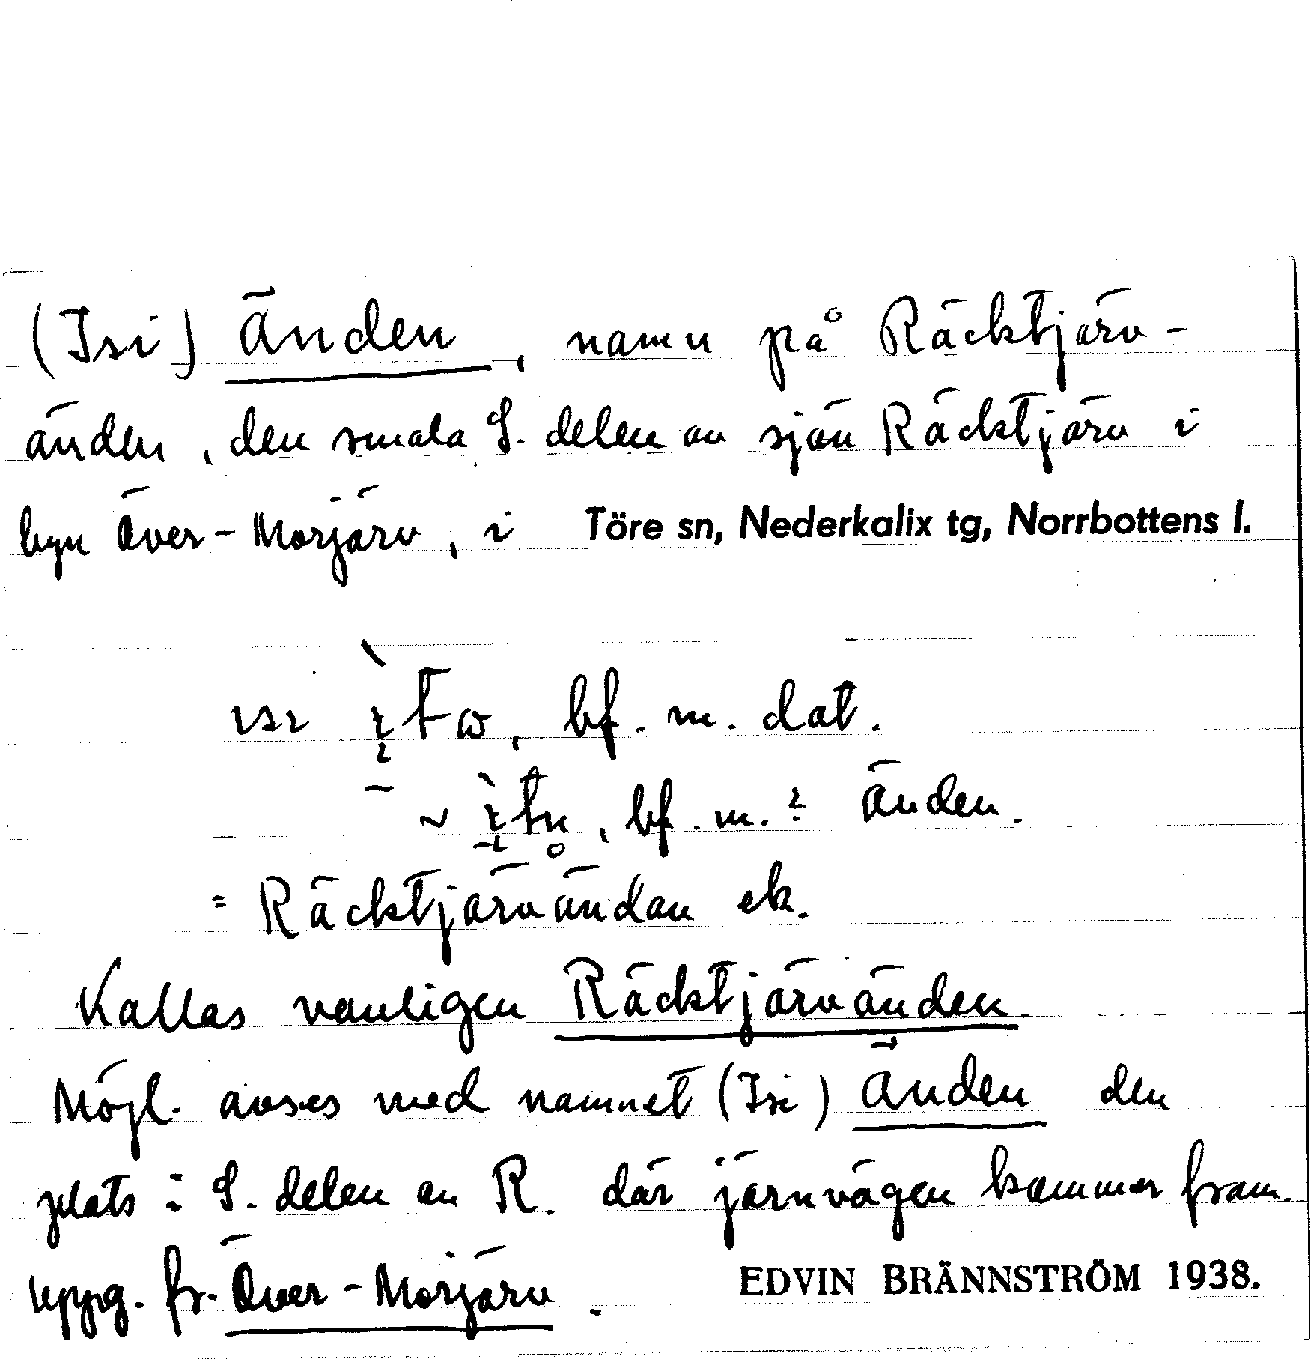 (Isi) Änden, namn på Räcktjärv-
änden, den smala S. delen av sjön Räcktjärv i
byn Över-Morjärv, i Töre sn, Nederkalix tg, Norrbottens l.
ɪsɪ bf. m. dat.
~ bf. m.? änden.
= Räcktjärvändan ek.
Kallas vanligen Räcktjärvänden
Möjl. avses med namnet (Isi) Änden den
plats i S. delen av R. där järnvägen kommer fram.
uppg. fr. Över-Morjärv. EDVIN BRÄNNSTRÖM 1938.